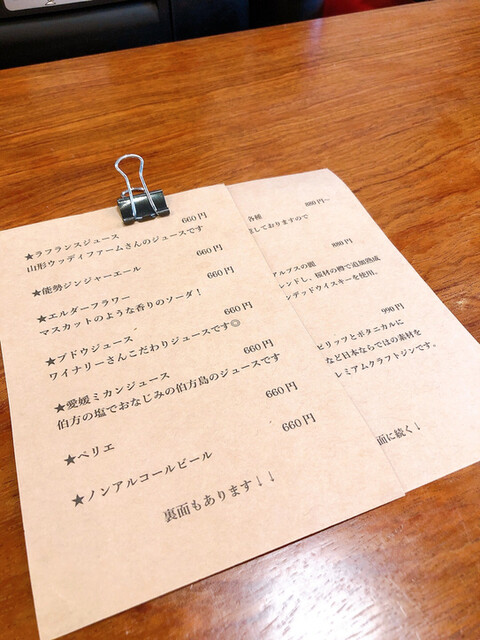 ★ラフランスジュース 660円
山形ウッディファームさんのジュースです
★能勢ジンジャーエール 660円
★エルダーフラワー 660円
マスカットのような香りのソーダ！
★ブドウジュース 660円
ワイナリーさんこだわりジュースです◎
★愛媛ミカンジュース 660円
伯方の塩でおなじみの伯方島のジュースです
★ペリエ 660円
★ノンアルコールビール 660円
裏面もあります↓↓
各種 880円~
しておりますので
880円
アルプスの麓
レンドし、桜材の樽で追加熟成
ンデッドウイスキーを使用。
990円
ピリッツとボタニカルに
など日本ならではの素材を
レミアムクラフトジンです。
面に続く！